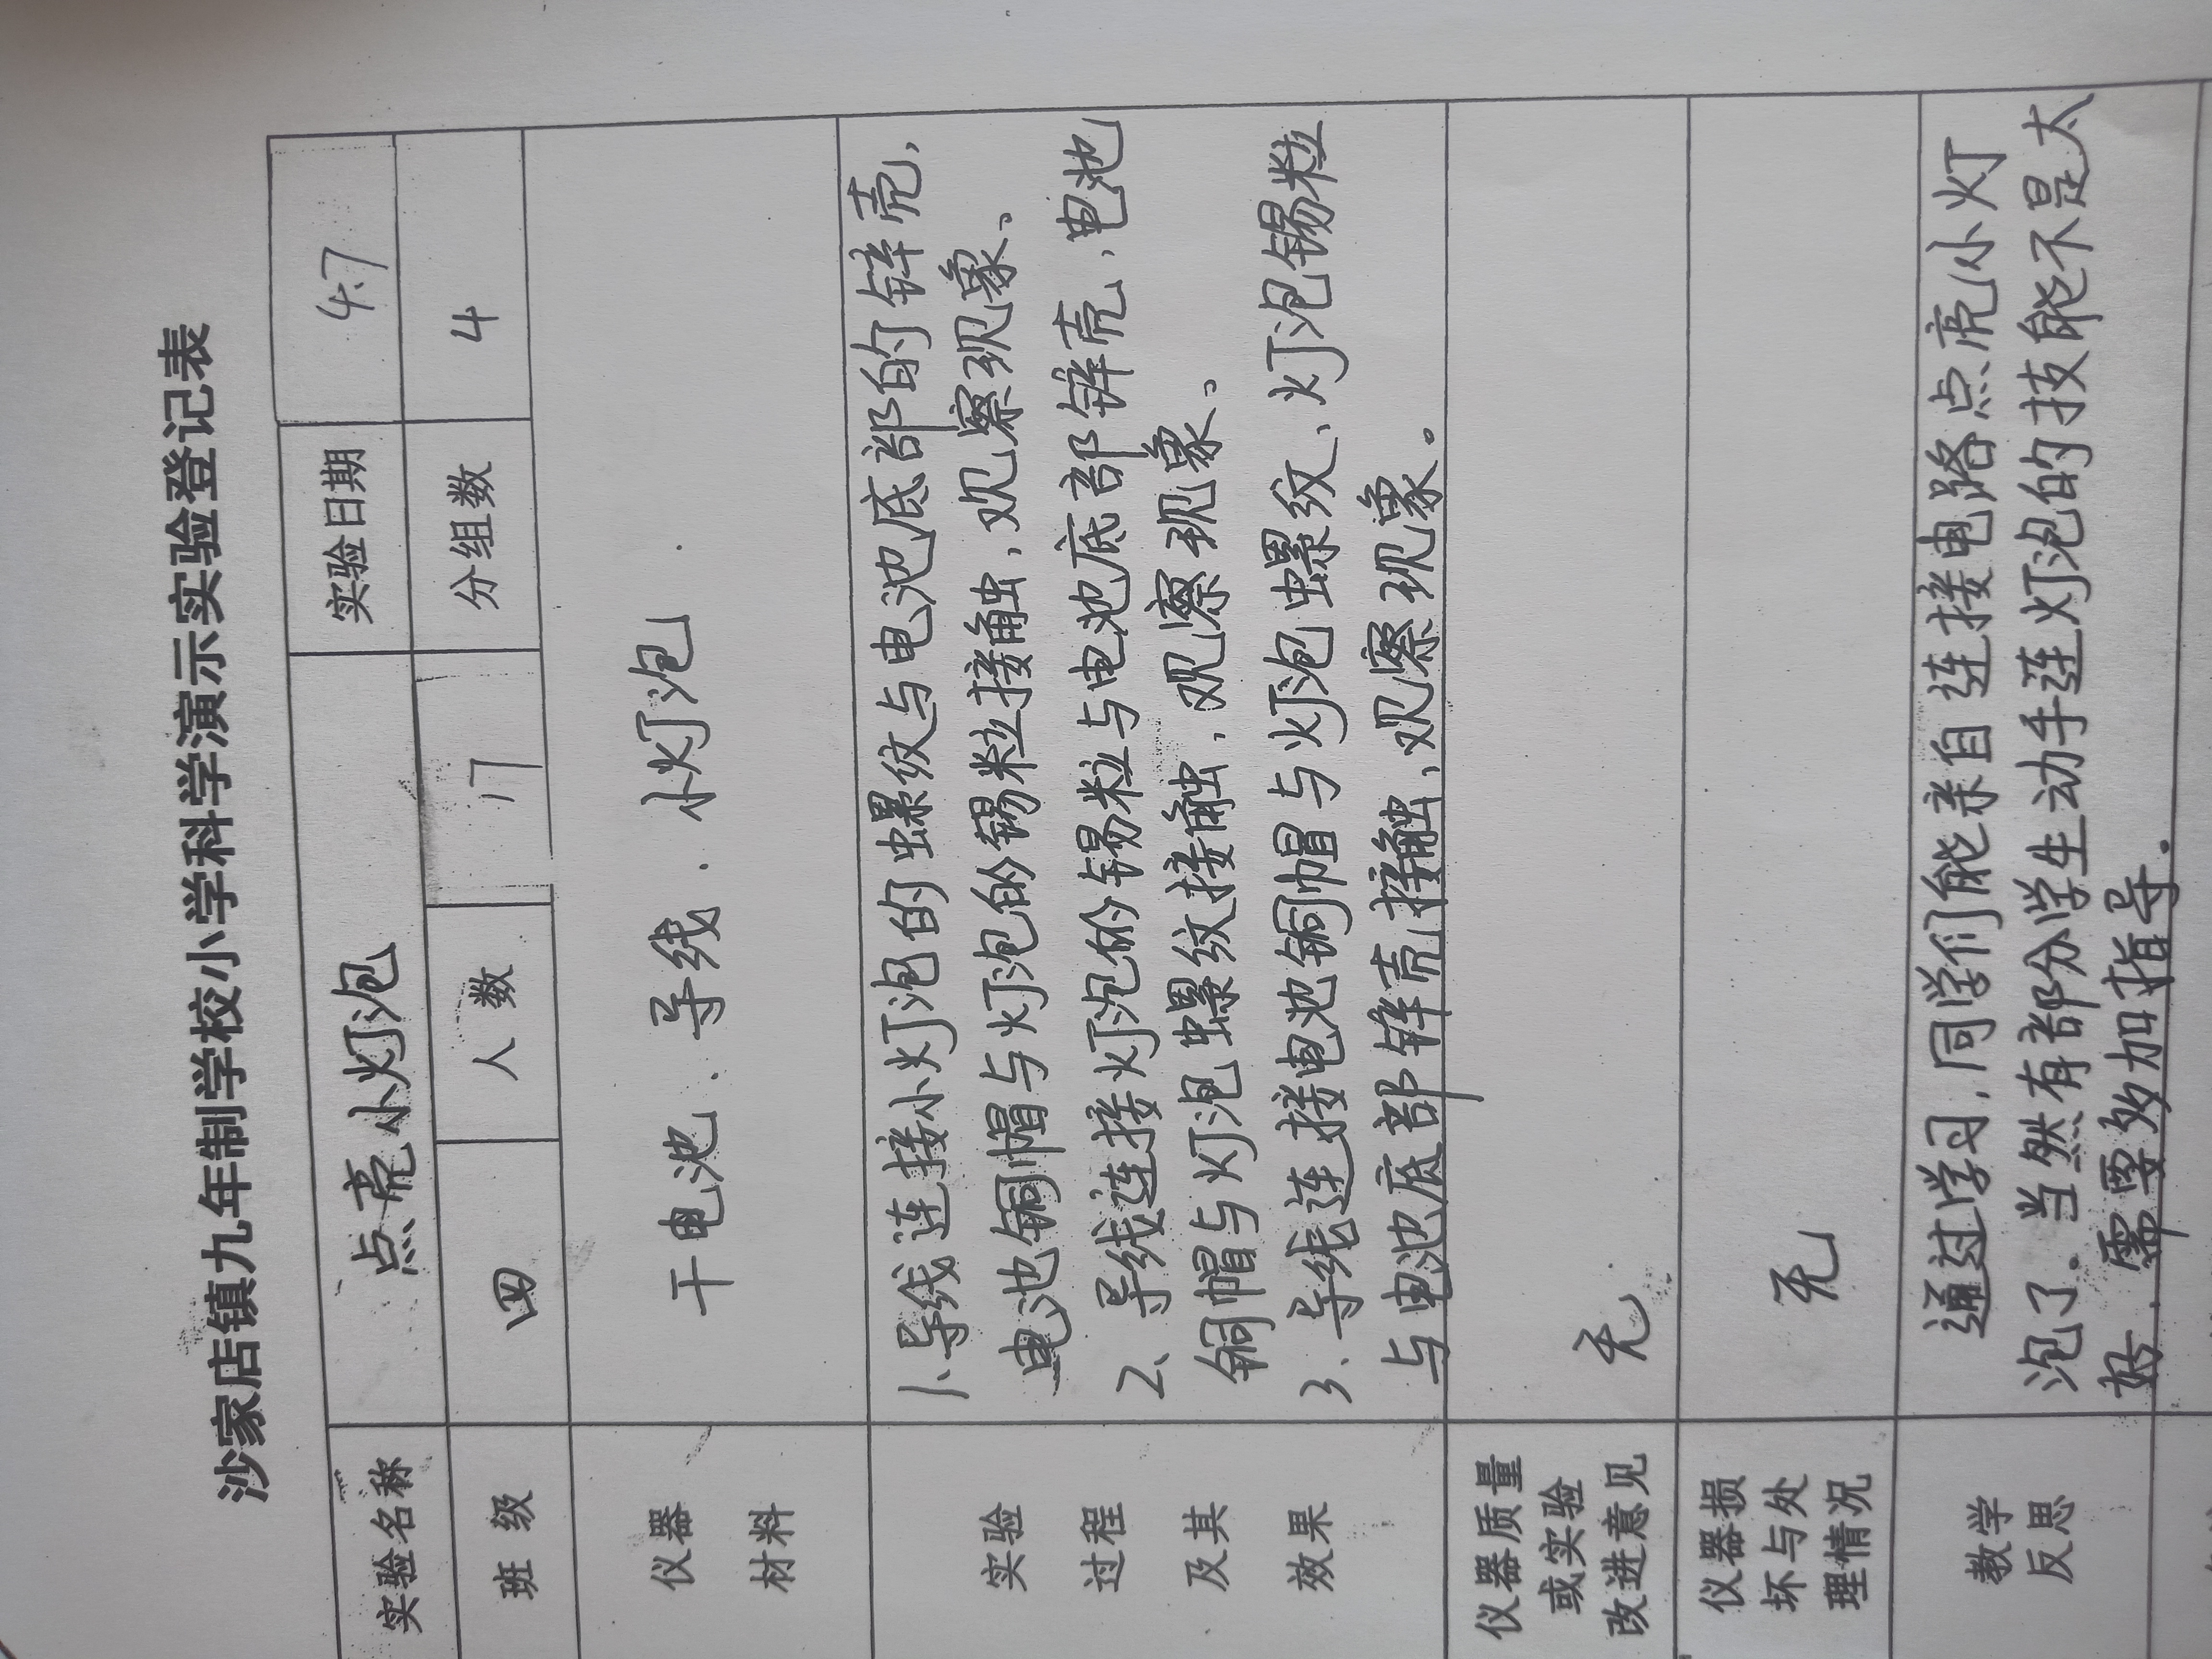 沙家店镇九年制学校小学科学演示实验登记表
实验名称 点亮小灯泡 实验日期 4.7
班 级 四 人 数 17 分组数 4
仪器
材料
干电池、导线、小灯泡
实验
过程
及其
效果
1.导线连接小灯泡的螺纹与电池底部的锌壳,
电池铜帽与灯泡的锡粒接触,观察现象、
2、导线连接灯泡的锡粒与电池底部锌壳,电池
铜帽与灯泡螺纹接触,观察现象。
3、导线连接电池铜帽与灯泡螺纹、灯泡锡粒
与电池底部锌壳接触,观察现象。
仪器质量
或实验
改进意见
无
仪器损
坏与处
理情况
无
教学
反思
通过学习,同学们能亲自连接电路点亮小灯
泡了、当然有部分学生动手连灯泡的技能不是太
好,需要多加指导.